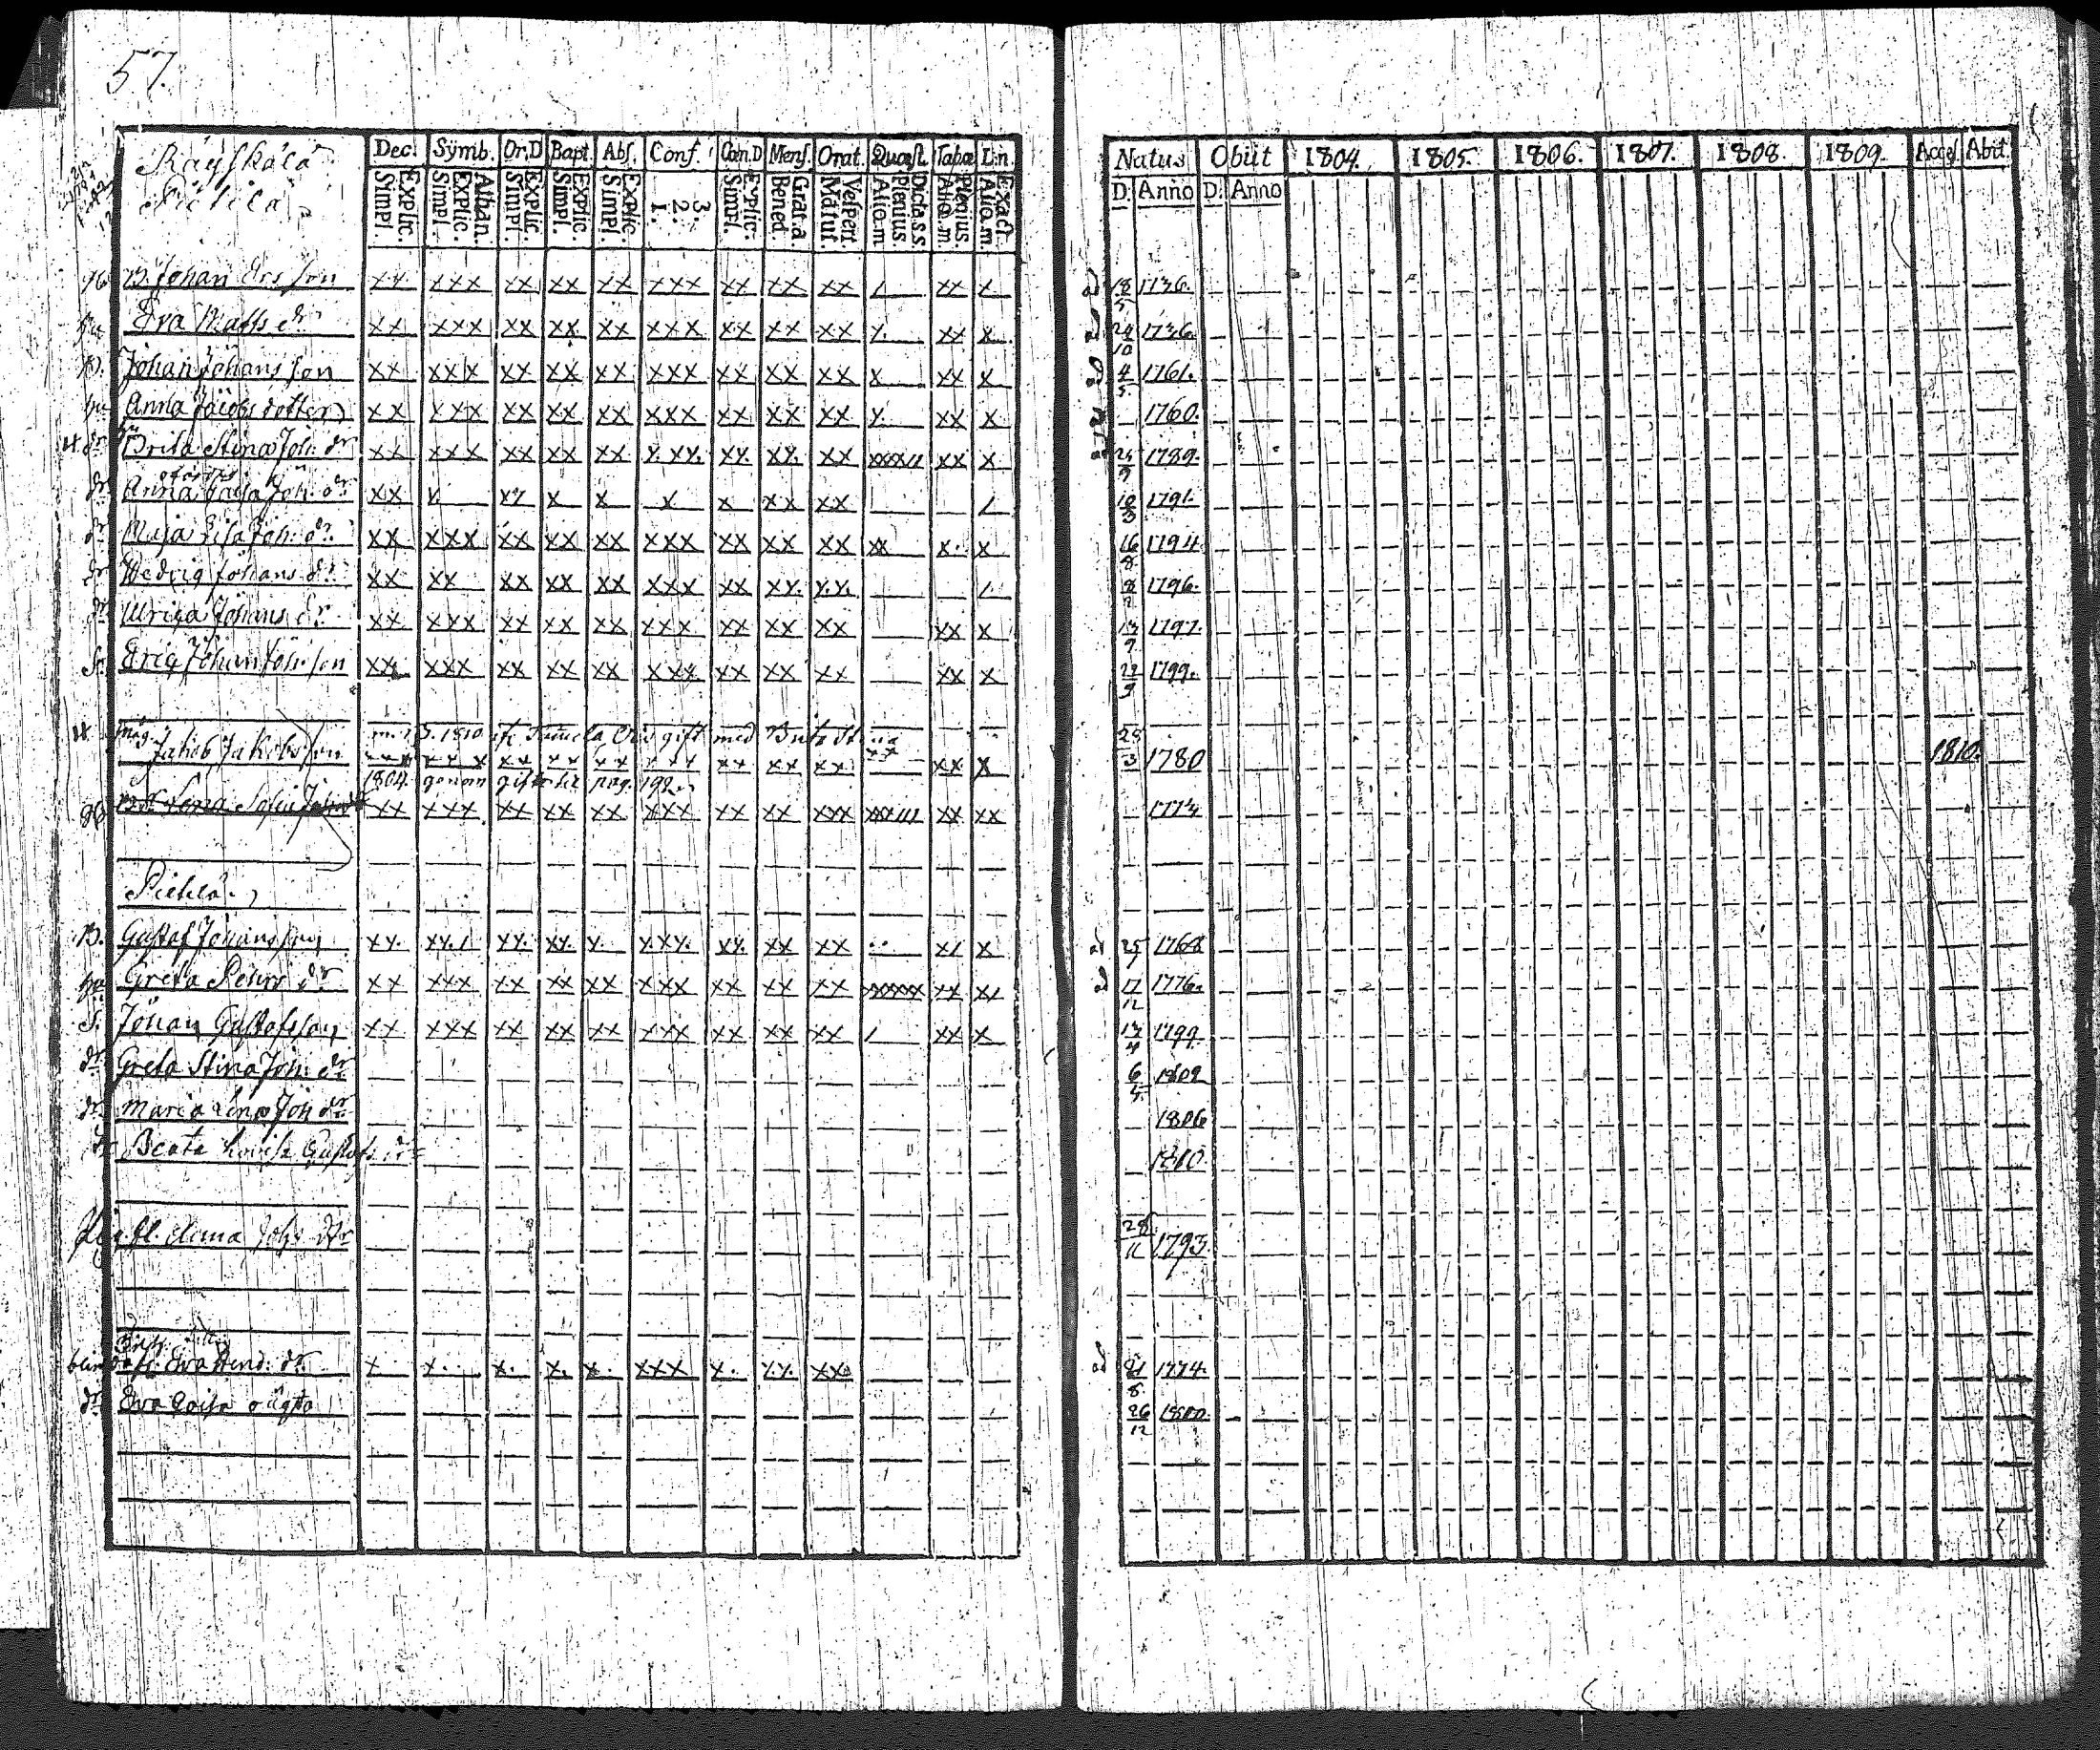 57.
Räyskälä
Dec. Symb. Or.D Bapt. Abs. Conf. Cœn.D Mens. Orat. Quæst. Tabæ L.n.
Explic. Simpl. Athan. Explic. Simpl. Explic. Simpl. Explic. Simpl. Explic. Simpl. 3. 2. 1. Explic. Simpl. Grat.a Bened. Vespert. Matut. Dicta s.s. Plenius Alio m. Plenius Alio m. Exact Alio m.
Natus Obiit 1804. 1805. 1806. 1807. 1808. 1809. Acces Abit
D. Anno D. Anno
B. Johan Ersson xx xxx xx xx xx xxx xx xx xx / xx x 18/5 1736.
hu Eva Matts dr xx xxx xx xx xx xxx xx xx xx x. xx x 24/10 1736.
B. Johan Johansson xx xxx xx xx xx xxx xx xx xx x xx x 4/5 1761.
hu Anna Jacobsdotter xx xxx xx xx xx xxx xx xx xx x. xx x 1760.
dr Brita Stina Joh. dr xx xxx xx xx xx xxx xx xx xx xxxx// xx x 24/9 1789.
dr Anna Caisa Joh. dr xx x xx x x x x xx xx / 10/3 1791.
dr Maja Lisa Joh. dr xx xxx xx xx xx xxx xx xx xx xx x. x 16/8 1794.
dr Hedvig Johans dr xx xx xx xx xx xxx xx xx. x.x. /. 1796.
dr Ulrica Johans dr xx xxx xx xx xx xxx xx xx xx xx x 13/9 1797.
S. Eric Johan Joh.son xx xxx xx xx xx xxx xx xx xx xx x 22/9 1799.
1810 gift med Brita Stina
måg. Jakob Jakobsson xxx xxx xx xx xxx xx xx xx xx x 1780 1810.
1804. genom gifte till pag. 199
Lena Sofia xx xxx xx xx xx xxx xx xx xxx xxx/// xx xx 1774
Pietilä.
B. Gustaf Johansson xx. xx./ xx. xx. x. xxx. xx. xx xx .. x/ x 25/1 1768
hu Greta Pehrs dr xx xxx xx xx xx xxx xx xx xx xxxxx xx x/ 17/12 1776.
S. Johan Gustafsson xx xxx xx xx xx xxx xx xx xx / xx x 13/4 1799.
dr Greta Stina Joh. dr 6/5 1802
dr. Maria Lena Joh dr 1806
dr Beata Lovisa Gustafs dr 1810.
Pig. fl. Anna Johs dtr 28/11 1793.
Eva Hend. dr x x.. x. x. x. xxx x. x.x. xx. 21/8 1774.
dr Eva Caisa oägta 26/12 1800.